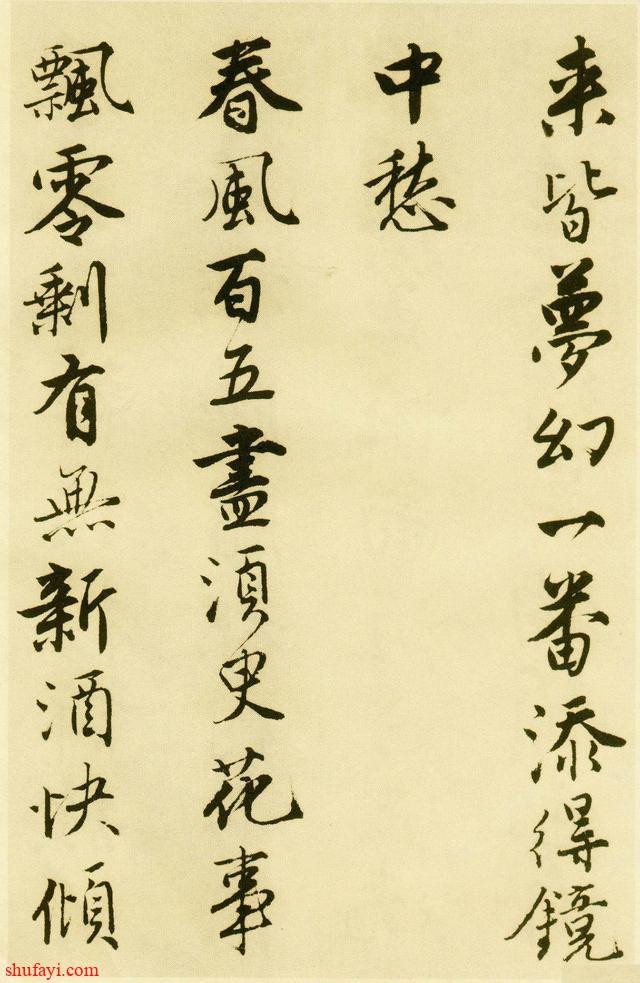 来皆夢幻一番添得鏡
中愁
春風百五盡須臾花事
飄零剩有無新酒快傾
shufayi.com